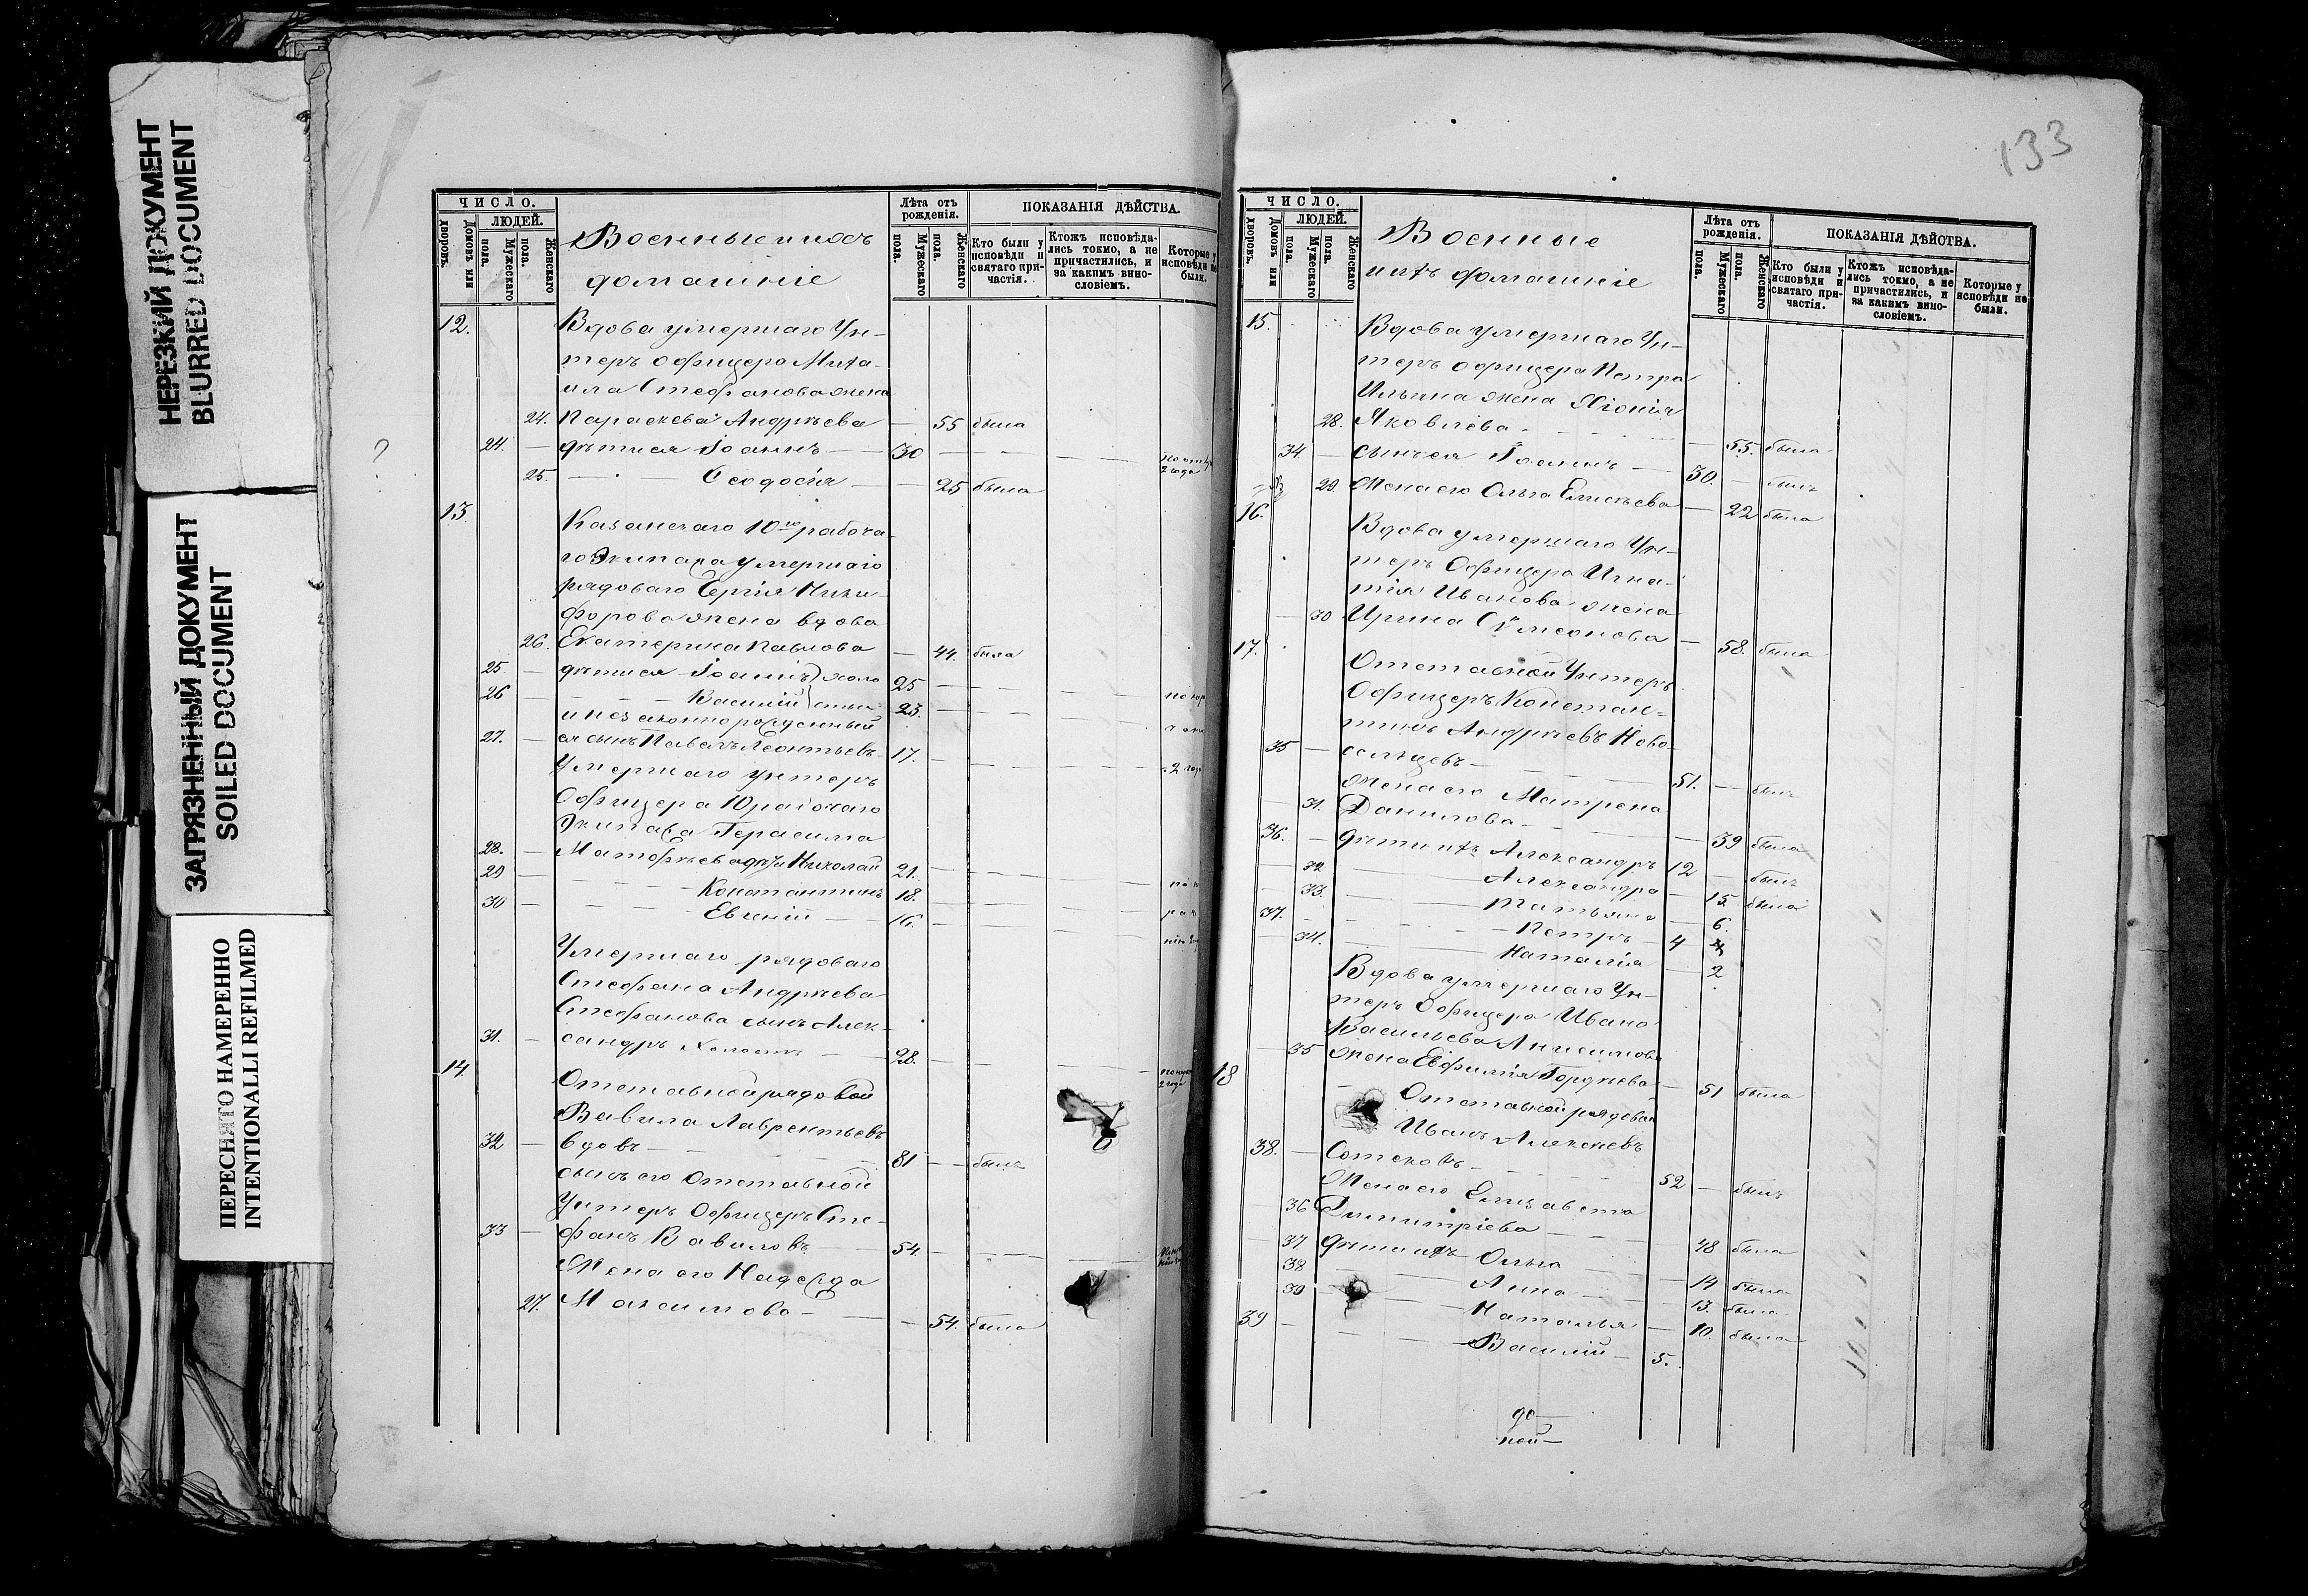 НЕРЕЗКИЙ ДОКУМЕНТ
BLURRED DOCUMENT
ЗАГРЯЗНЕННЫЙ ДОКУМЕНТ
SOILED DOCUMENT
ПЕРЕСНЯТО НАМЕРЕННО
INTENTIONALLI REFILMED
?
ЧИСЛО.
ЛЮДЕЙ.
Домовъ или дворовъ.
Мужескаго пола.
Женскаго пола.
Военные и ихъ
домашніе
Лѣта отъ рожденія.
Мужескаго пола.
Женскаго пола.
ПОКАЗАНІЯ ДѢЙСТВА.
Кто были у исповѣди и святаго причастія.
Ктожъ исповѣдались токмо, а не причастились, и за какимъ винословіемъ.
Которые у исповѣди не были.
12. Вдова умершаго Ун-
теръ офицера Миха-
ила Стефанова жена
24. Параскева Андрѣева — 55 была
24. — дѣти ея Іоаннъ — 30
2 года
25. Ѳеодосія — 25 была
13. Казанскаго 10го рабоча-
го Экипажа умершаго
рядоваго Сергія Ники-
форова жена вдова
26. Екатерина Павлова — 44. была
25 — дѣти ея Іоаннъ холо 25
26 — Василій стые 23.
и незаконнорожденный
27. — ея сынъ Павелъ Леонтьевъ 17.
Умершаго унтеръ
Офицера 10 рабочаго
Экипажа Герасима
28. — Матѳѣева дѣти Николай 21.
29 — Константинъ 18.
30 — Евгеній — 16.
Умершаго рядоваго
Стефана Андрѣева
Стефанова сынъ Алек-
31. — сандръ Холостъ — 28.
2 года
14. Отставной рядовой
Вавила Лаврентьевъ
32 — вдовъ — 81 — былъ
сынъ его Отставной
Унтеръ Офицеръ Сте-
33 — фанъ Вавиловъ — 54.
Жена его Надежда
27. Максимова — 54. была
133
ЧИСЛО.
ЛЮДЕЙ.
Домовъ или дворовъ.
Мужескаго пола.
Женскаго пола.
Военные
ихъ домашніе
Лѣта отъ рожденія.
Мужескаго пола.
Женскаго пола.
ПОКАЗАНІЯ ДѢЙСТВА.
Кто были у исповѣди и святаго причастія.
Ктожъ исповѣдались токмо, а не причастились, и за какимъ винословіемъ.
Которые у исповѣди не были.
15. Вдова умершаго Ун-
теръ офицера Петра
Ильина жена Хіонія
28. Яковлева — 55. была
34. — сынъ ея Іоаннъ — 30. — былъ
29. Жена его Ольга Елисѣева — 22 была
16. Вдова умершаго Ун-
теръ Офицера Игна-
тія Иванова жена
30 Ирина Сѵмеонова — 58. была
17. Отставной Унтеръ
Офицеръ Констан-
тинъ Андрѣевъ Ново-
35 — сельцевъ — 51. — былъ
Жена его Матрена
31. Данилова — 39 была
36. — дѣти ихъ Александръ 12 — былъ
32 Александра — 15. была
33. Татьяна — 6.
37. Петръ — 4
34. Наталія — 2
Вдова умершаго Ун-
теръ Офицера Ивана
Васильева Анисимова
35 жена Евфимія Гордѣева — 51 была
18 Отставной рядовой
Иванъ Алексѣевъ
38. — Сотсковъ — 52 — былъ
Жена его Елизавета
36 Димитріева — 48 была
37 дѣти ихъ Ольга — 14 была
38 Анна — 13. была
39 Наталья — 10. была
39 Василій — 5.